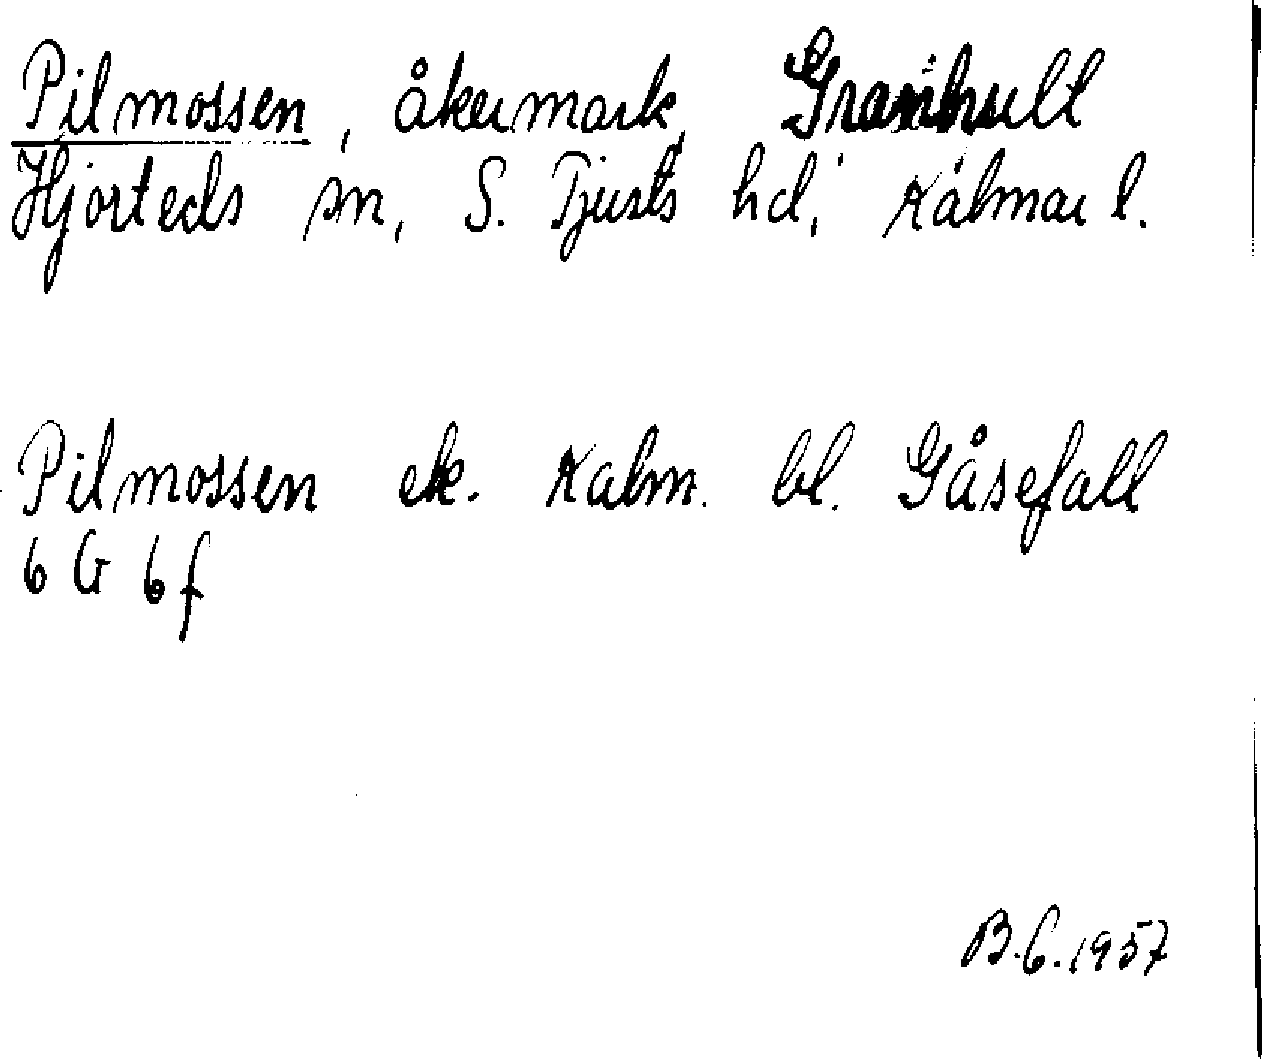 Pilmossen, åkermark, Granhult
Hjorteds sn, S. Tjusts hd, Kalmar l.
Pilmossen ek. Kalm. bl. Gåsefall
6 G 6 f
B.G. 1957